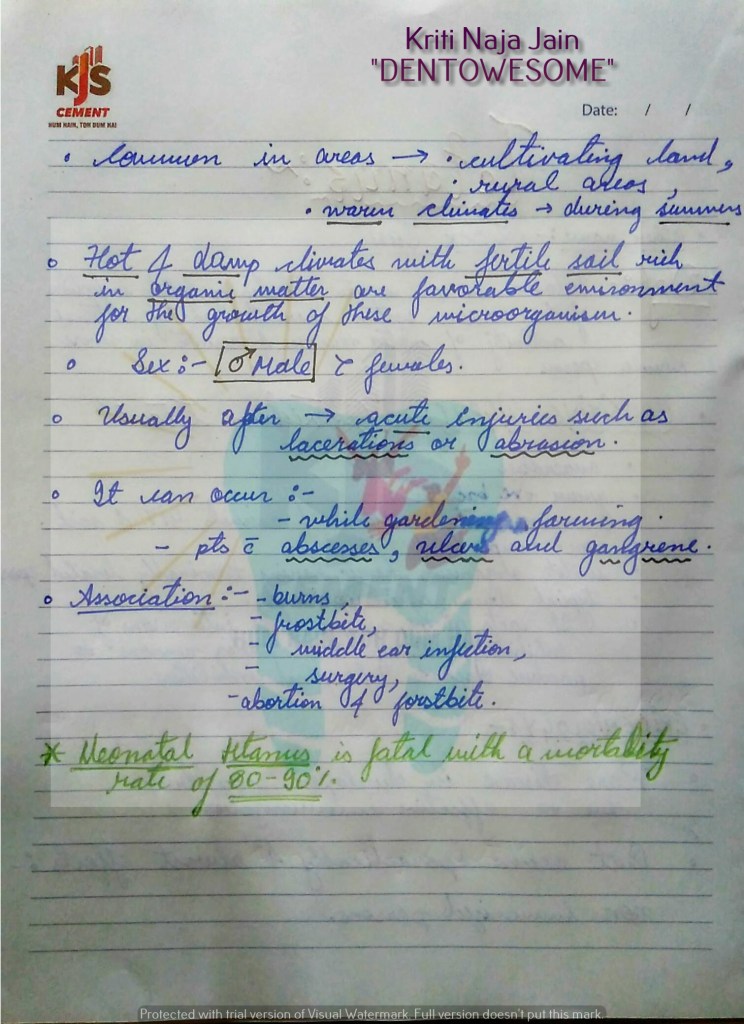 Kriti Naja Jain
"DENTOWESOME"
KJS
CEMENT
HUM HAIN, TOH DUM HAI
Date: / /
• Common in areas → • cultivating land,
• rural areas,
• warm climates → during summers
Hot & damp climates with fertile soil rich
in organic matter are favorable environment
for the growth of these microorganism.
Sex :- ♂ Male > females.
Usually after → acute injuries such as
lacerations or abrasion.
It can occur :-
- while gardening, farming.
- pts c̄ abscesses, ulcers and gangrene.
Association :- - burns,
- frostbite,
- middle ear infection,
- surgery,
- abortion & forstbite.
* Neonatal tetanus is fatal with a mortality
rate of 80-90%.
Protected with trial version of Visual Watermark. Full version doesn't put this mark.